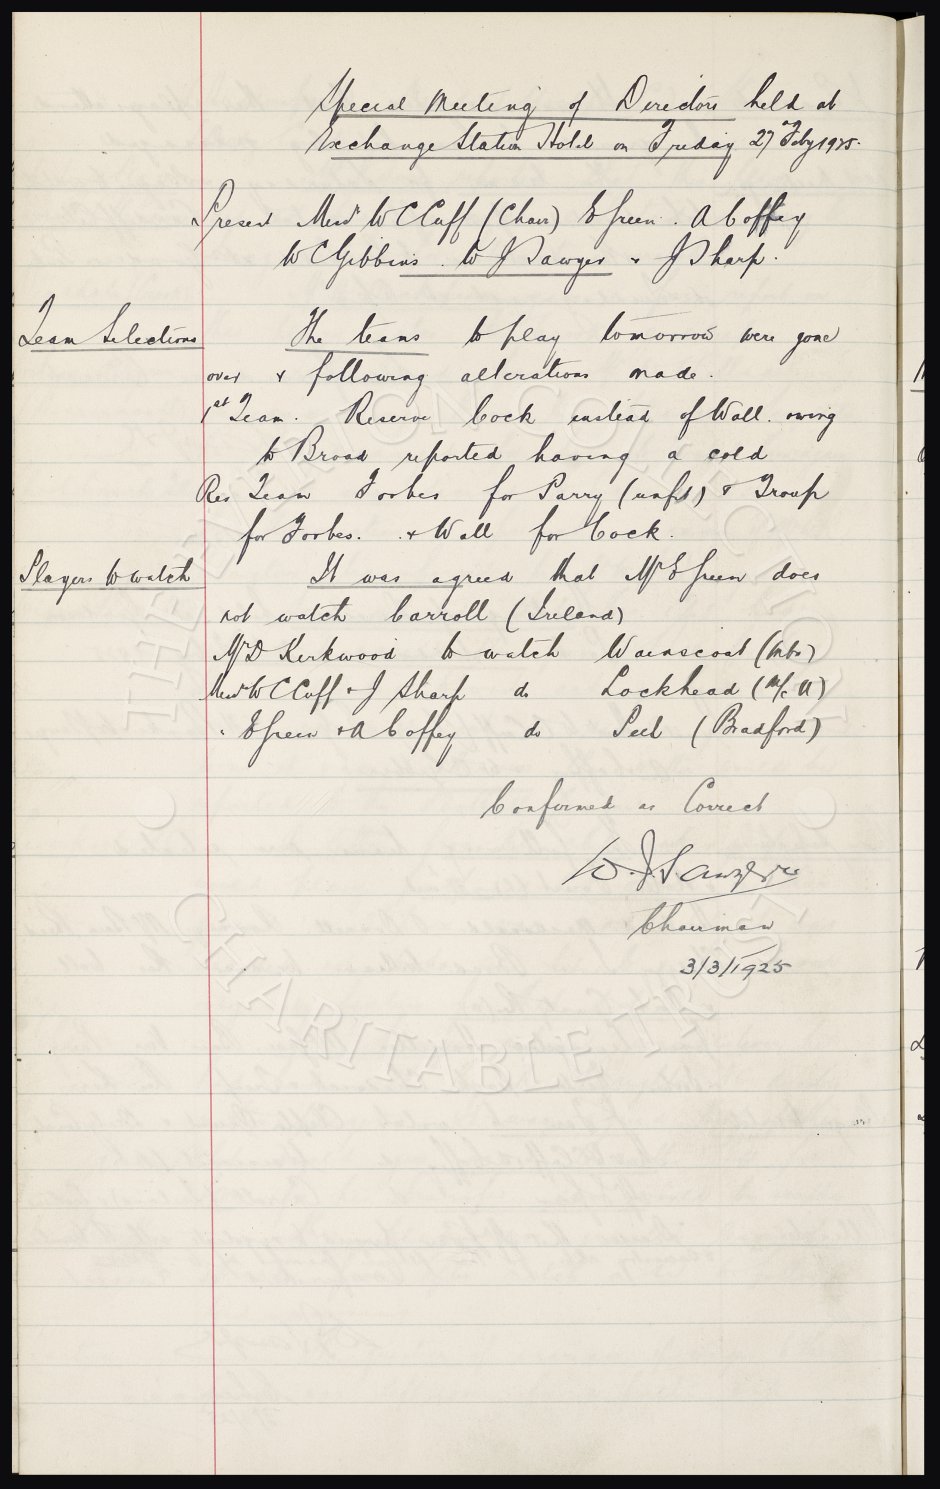 Special Meeting of Directors held at
Exchange Station Hotel on Friday 27 Feby 1925.
Present Messrs W C Cuff (Chair) E Green. A Coffey
W C Gibbins. W J Sawyer & J Sharp.
Team Selections The teams to play tomorrow were gone
over & following alterations made.
1st Team. Reserve Cock instead of Wall. owing
to Broad reported having a cold
Res Team Forbes for Parry (unfit) & Troup
for Forbes. & Wall for Cock.
Players to watch It was agreed that Mr E Green does
not watch Carroll (Ireland)
Mr D Kirkwood to watch Wainscoat
Messrs W C Cuff & J Sharp do Lochhead (M/c U)
" E Green & A Coffey do Peel (Bradford)
Confirmed as Correct
W. J. Sawyer
Chairman
3/3/1925
THE EVERTON COLLECTION
CHARITABLE TRUST